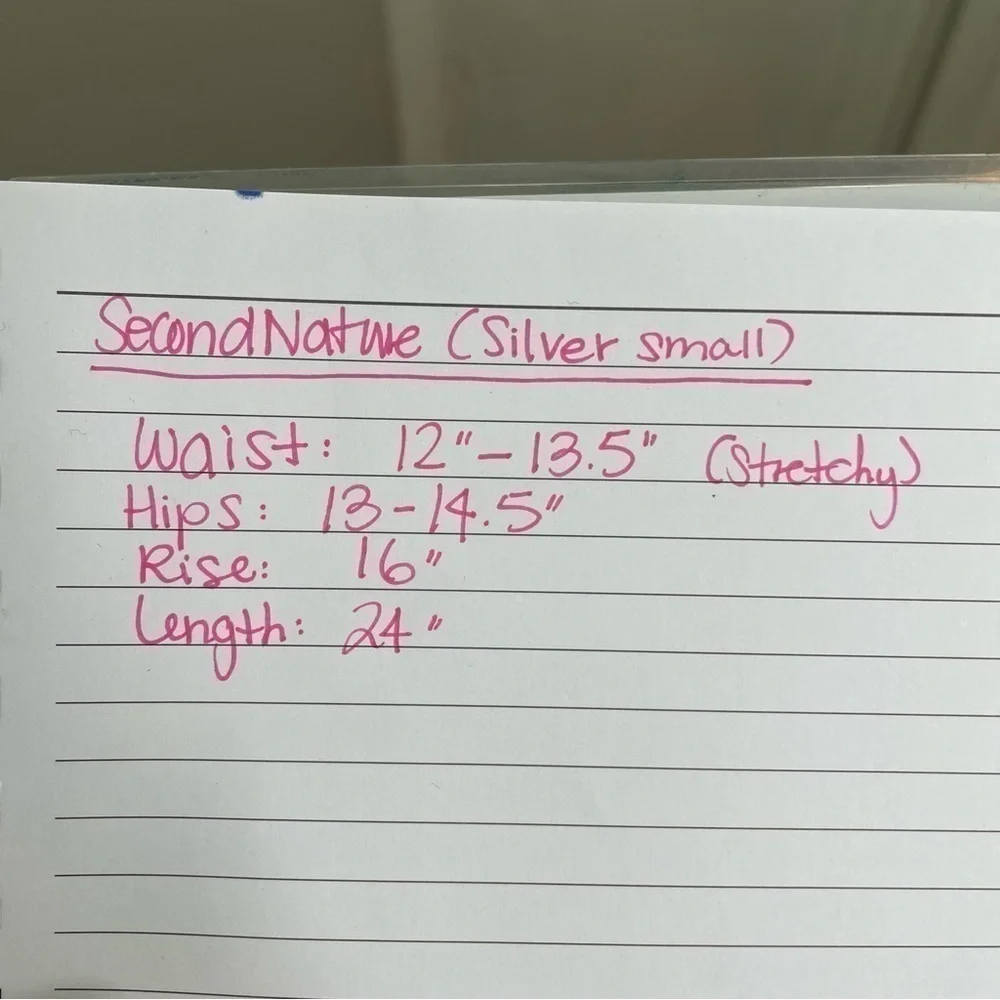 Second Nature (Silver small)
Waist: 12" - 13.5" (Stretchy)
Hips: 13 - 14.5"
Rise: 16"
Length: 24"